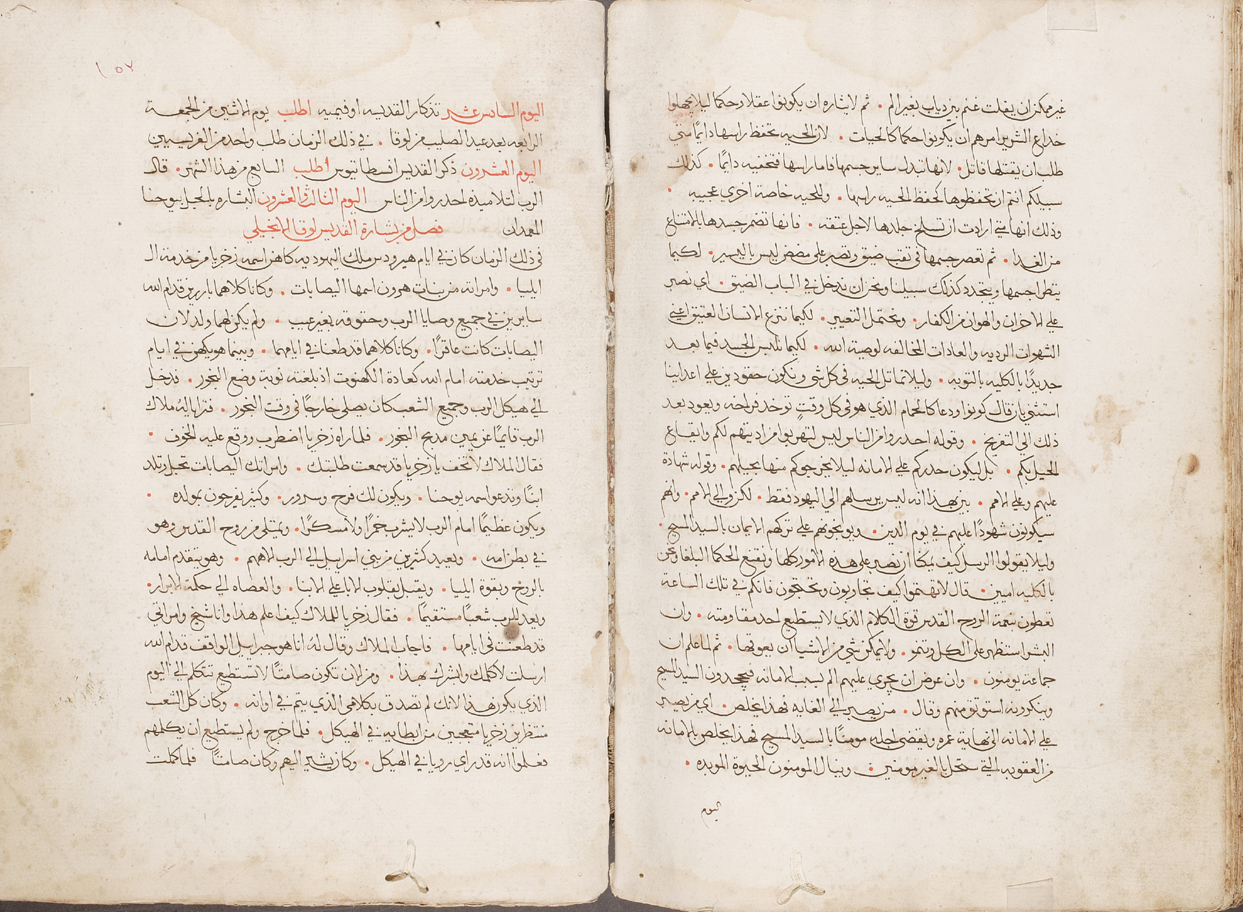 غير ممكن ان يفلت غنم بين دياب بغير الم • ثم لايثاره ان يكونوا عقلا وحكما ليلا يجهلوا
خداع الشرير امرهم ان يكونوا حكما كالحيات • لان الحيه تحفظ راسها دايمًا متي
طلب ان يقتلها قاتل • لانها تبدل ساير جسمها فاما راسها فتخفيه دايمًا • كذلك
سبيلكم انتم ان تحفظوها كحفظ الحيه راسها • وللحيه خاصة اخري عجيبه •
وذلك انها متي ارادت ان تسلخ جلدها لاجل عتقه • فانها تضمر جسدها بالامتناع
من الغدا • ثم تعصر جسمها في ثقب ضيق وتصبر علي مضض ليس باليسير • لكيما
جسمها ويتجدد كذلك سبيلنا ونحن ان ندخل في الباب الضيق • اي نصبر
علي الاحزان والهوان من الكفار • ونحتمل التعيير • لكيما ننزع الانسان العتيق اعني
الشهوات الرديه والعادات المخالفه لوصية الله • لكيما نلبس الجسد فيما بعد
جديدًا بالكليه بالتوبه • وليلا نماتل الحيه في كل شي ونكون حقودين علي اعداينا
استثني بان قال كونوا ودعا كالحمام الذي هو في كل وقتٍ توخد فراخه ويعود بعد
ذلك الي التفريخ • وقوله احدروا من الناس ليس لتهربوا من اديتهم لكم وايقاع
الحيل بكم • بل ليكون حدركم علي الامانه ليلا يخرجوكم منها بحيلهم • وقوله شهادة
عليهم وعلي الامم • يبين بهذا انه ليس يرسلهم الي اليهود فقط • لكن والي الامم • وانهم
سيكونون شهودًا عليهم في يوم الدين • ويوبخونهم علي تركهم الايمان بالسيد المسيح •
وليلا يقولوا الرسل كيف يمكنا ان نصبر علي هذه الامور كلها ونقنع الحكما البلغا ونحن
بالكليه اميين • قال لا تهتموا كيف تحاربون وتحتجون فانكم في تلك الساعة
تعطون نعمة الروح القدس قوة الكلام الذي لا يستطيع احد مقاومته • وان
البشرا ستظهر علي الكل وتنمو • ولا يمكن شي من الاشيا ان يعوقها • ثم لما علم ان
جماعة يومنون • وان عرض ان يجري عليهم الم بسبب الامانه فيجحدون السيد المسيح
وينكرونه استوثق منهم وقال • من يصبر الي الغايه فهدا يخلص • اي من يصبر
علي الامانه الي نهاية عمره ويقضي اجله مومنًا بالسيد المسيح فهدا يخلص بالامانه
من العقوبه التي ستحل بالغير مومنين • وينال المومنون الحيوة الموبده •
اليوم
١٥٧
اليوم السادس عشر تذكار القديسه اوفيميه اطلب يوم الاثنين من الجمعة
الرابعه بعد عيد الصليب من لوقا • في ذلك الزمان طلب واحد من الفريسيين
اليوم العشرون ذكر القديس افسطاتيوس اطلب السابع من هذا الشهر • قال
الرب لتلاميذه احدروا من الناس اليوم الثالث والعشرون البشاره بالحبل بيوحنا
المعمدان فصل من بشارة القديس لوقا الانجيلي
في ذلك الزمان كان في ايام هيرودس ملك اليهوديه كاهن اسمه زخريا من خدمة ال
ايليا • وامراته من بنات هرون اسمها اليصابات • وكانا كلاهما بارين قدام الله
سايرين في جميع وصايا الرب وحقوقه بغير عيب • ولم يكن لهما ولد لان
اليصابات كانت عاقرًا • وكانا كلاهما قد طعنا في ايامهما • وبينما هو يكهن في ايام
ترتيب خدمته امام الله كعادة الكهنوت اذ بلغته نوبة وضع البخور • فدخل
الي هيكل الرب وجميع الشعب كان يصلي خارجًا في وقت البخور • فترايا له ملاك
الرب قايمًا عن يمين مدبح البخور • فلما راه زخريا اضطرب ووقع عليه الخوف •
فقال الملاك لا تخف يا زخريا قد سمعت طلبتك • وامراتك اليصابات تحبل وتلد
ابنًا وتدعوا اسمه يوحنا • ويكون لك فرح وسرور • وكثير يفرحون بمولده •
ويكون عظيمًا امام الرب لا يشرب خمرًا ولا مسكرًا • ويمتلي من روح القدس وهو
في بطن امه • ويعيد كثيرين من بني اسرايل الي الرب الاههم • وهو يتقدم امامه
بالروح وبقوة ايليا • ويقبل بقلوب الابا علي الابنا • والعصاه الي حكمة الابرار •
ويعد للرب شعبًا مستقيمًا • فقال زخريا للملاك كيف اعلم هدا وانا شيخ وامراتي
قد طعنت في ايامها • فاجاب الملاك وقال له انا هو جبراييل الواقف قدام الله
ارسلت لاكلمك وابشرك بهدا • ومن الان تكون صامتًا لا تستطيع تتكلم الي اليوم
الذي يكون هدا لانك لم تصدق بكلامي الذي يتم في اوانه • وكان كل الشعب
منتظرين زخريا متعجبين من ابطايه في الهيكل • فلما خرج ولم يستطيع ان يكلمهم
فعلموا انه قد راي رويا في الهيكل • وكان يشير اليهم وكان صامتًا فلما كملت